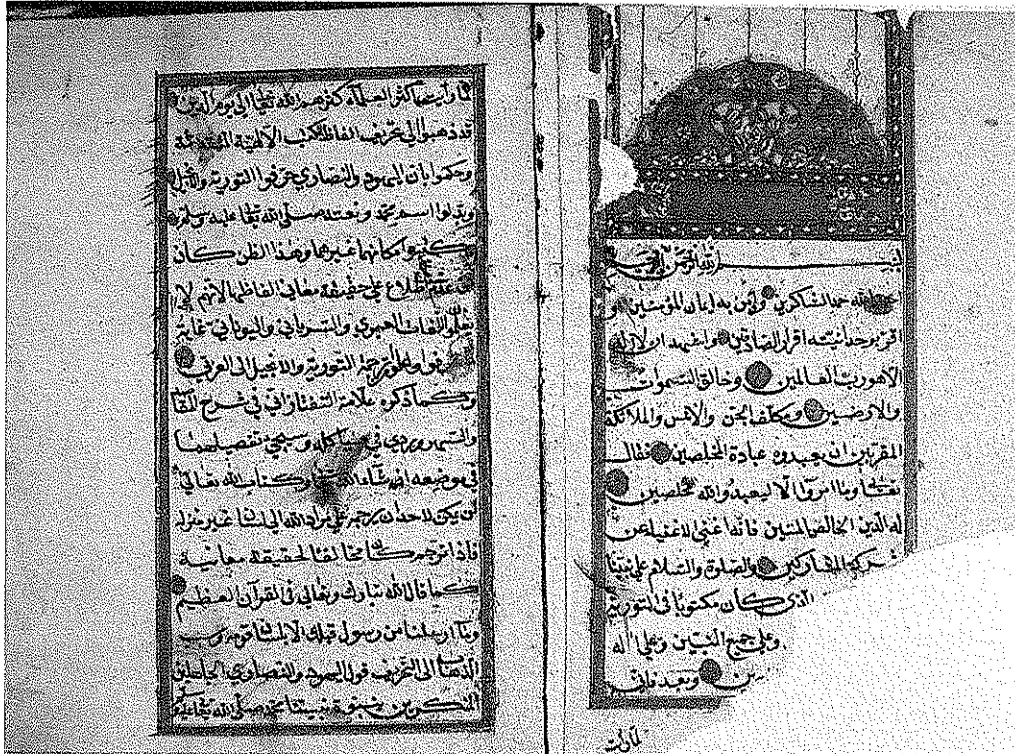 بسم الله الرحمن الرحيم
احمد الله حمد الشاكرين واؤمن به ايمان المؤمنين و
اقر بوحدانيته اقرار الصادقين واشهد ان لا اله
الا هو رب العالمين وخالق السموات
والارضين ومكلف الجن والانس والملائكة
المقربين ان يعبدوه عبادة المخلصين فقال
تعالى وما امروا الا ليعبدوا الله مخلصين
له الدين الخالص المتين فانه اغنى الاغنياء عن
شركة المشاركين والصلوة والسلام على نبينا
الذى كان مكتوبا فى التورية
وعلى جميع النبيين وعلى اله
وبعد فانى
لما رأيت
لما رأيت اكثر العلماء كثرهم الله تعالى الى يوم الدين
قد ذهبوا الى تحريف الفاظ الكتب الالهية المتقدمة
وحكموا بان اليهود والنصارى حرفوا التورية والانجيل
وبدلوا اسم محمد ونعته صلى الله تعالى عليه وسلم
مكانهما غيرهما وهذا الظن كان
على حقيقة معانى الفاظها لانهم لا
اللغات العبرى والسريانى واليونانى غاية
ترجمة التورية والانجيل الى العربى
وكما ذكره علامة التفتازانى فى شرح المقا
والسهروردى فى هياكله وسيجئ تفصيلهما
فى موضعه ان شاء الله تعالى وكتاب الله تعالى
لن يكن لاحد ان يترجمه على مراد الله الى لسان غير منزله
فاذا ترجم كان مخالفا لحقيقة معانيه
كما قال الله تبارك وتعالى فى القرآن العظيم
وما ارسلنا من رسول قبلك الا بلسان قومه وسبب
الذهاب الى التحريف قول اليهود والنصارى الجاهلين
المنكرين بنبوة نبينا محمد صلى الله تعالى عليه